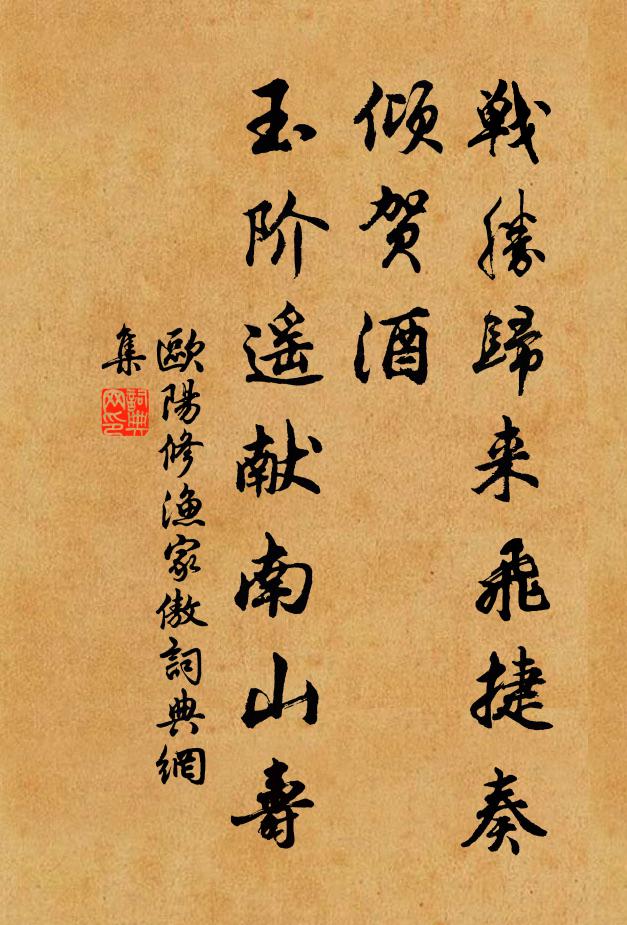 戦勝歸来飛捷奏
倾贺酒
玉阶遥献南山壽
歐陽修漁家傲詞典網
集
詞典网印